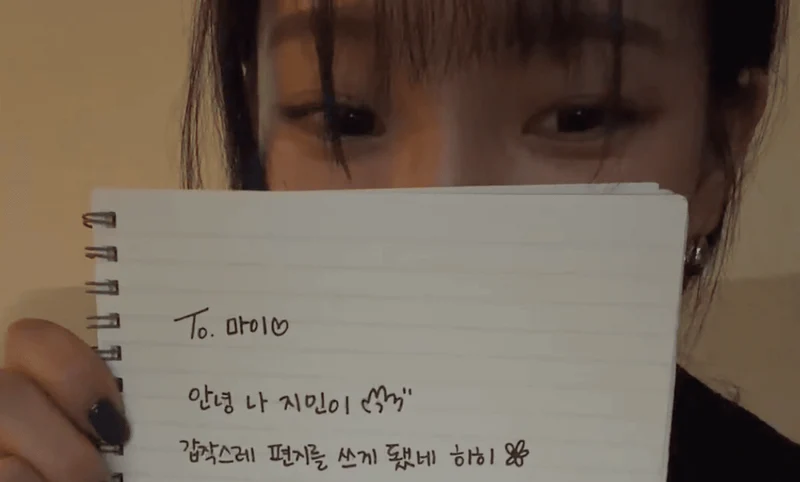 To. 마이♡
안녕 나 지민이
갑작스레 편지를 쓰게 됐네 하히